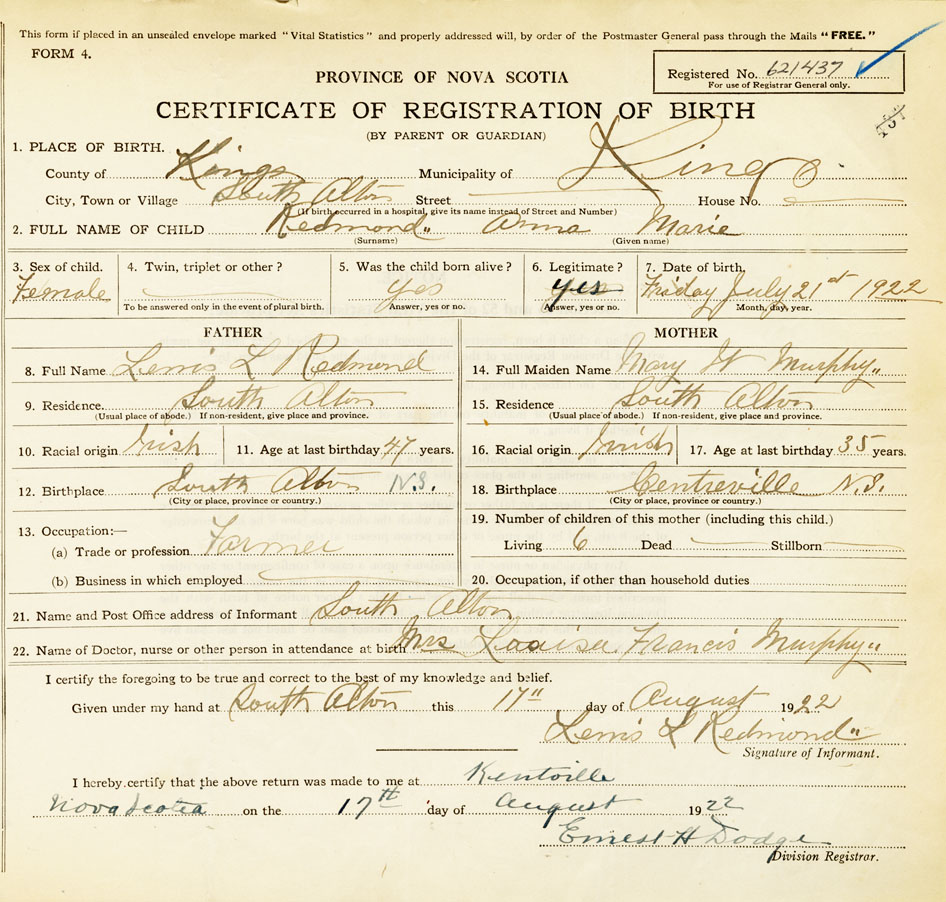 This form if placed in an unsealed envelope marked "Vital Statistics" and properly addressed will, by order of the Postmaster General pass through the Mails "FREE."
FORM 4.
Registered No. 621437
For use of Registrar General only.
PROVINCE OF NOVA SCOTIA
CERTIFICATE OF REGISTRATION OF BIRTH
(BY PARENT OR GUARDIAN)
1. PLACE OF BIRTH.
County of Kings Municipality of Kings
City, Town or Village South Alton Street House No.
(If birth occurred in a hospital, give its name instead of Street and Number)
2. FULL NAME OF CHILD Redmond" Anna Marie
(Surname) (Given name)
3. Sex of child. 4. Twin, triplet or other? 5. Was the child born alive? 6. Legitimate? 7. Date of birth.
Female yes yes Friday July 21st 1922
To be answered only in the event of plural birth. Answer, yes or no. Answer, yes or no. Month, day, year.
FATHER
8. Full Name Lewis L Redmond
9. Residence. South Alton
(Usual place of abode.) If non-resident, give place and province.
10. Racial origin Irish 11. Age at last birthday 47 years.
12. Birthplace South Alton N.S.
(City or place, province or country.)
13. Occupation:—
(a) Trade or profession Farmer
(b) Business in which employed
MOTHER
14. Full Maiden Name Mary W Murphy"
15. Residence South Alton
(Usual place of abode.) If non-resident, give place and province.
16. Racial origin Irish 17. Age at last birthday 35 years.
18. Birthplace Centreville N.S.
(City or place, province or country.)
19. Number of children of this mother (including this child.)
Living 6 Dead Stillborn
20. Occupation, if other than household duties
21. Name and Post Office address of Informant South Alton
22. Name of Doctor, nurse or other person in attendance at birth Mrs Louisa Francis Murphy"
I certify the foregoing to be true and correct to the best of my knowledge and belief.
Given under my hand at South Alton this 17" day of August 1922
Lewis L Redmond"
Signature of Informant.
I hereby certify that the above return was made to me at Kentville
Nova Scotia on the 17th day of August 1922
Ernest H Dodge
Division Registrar.